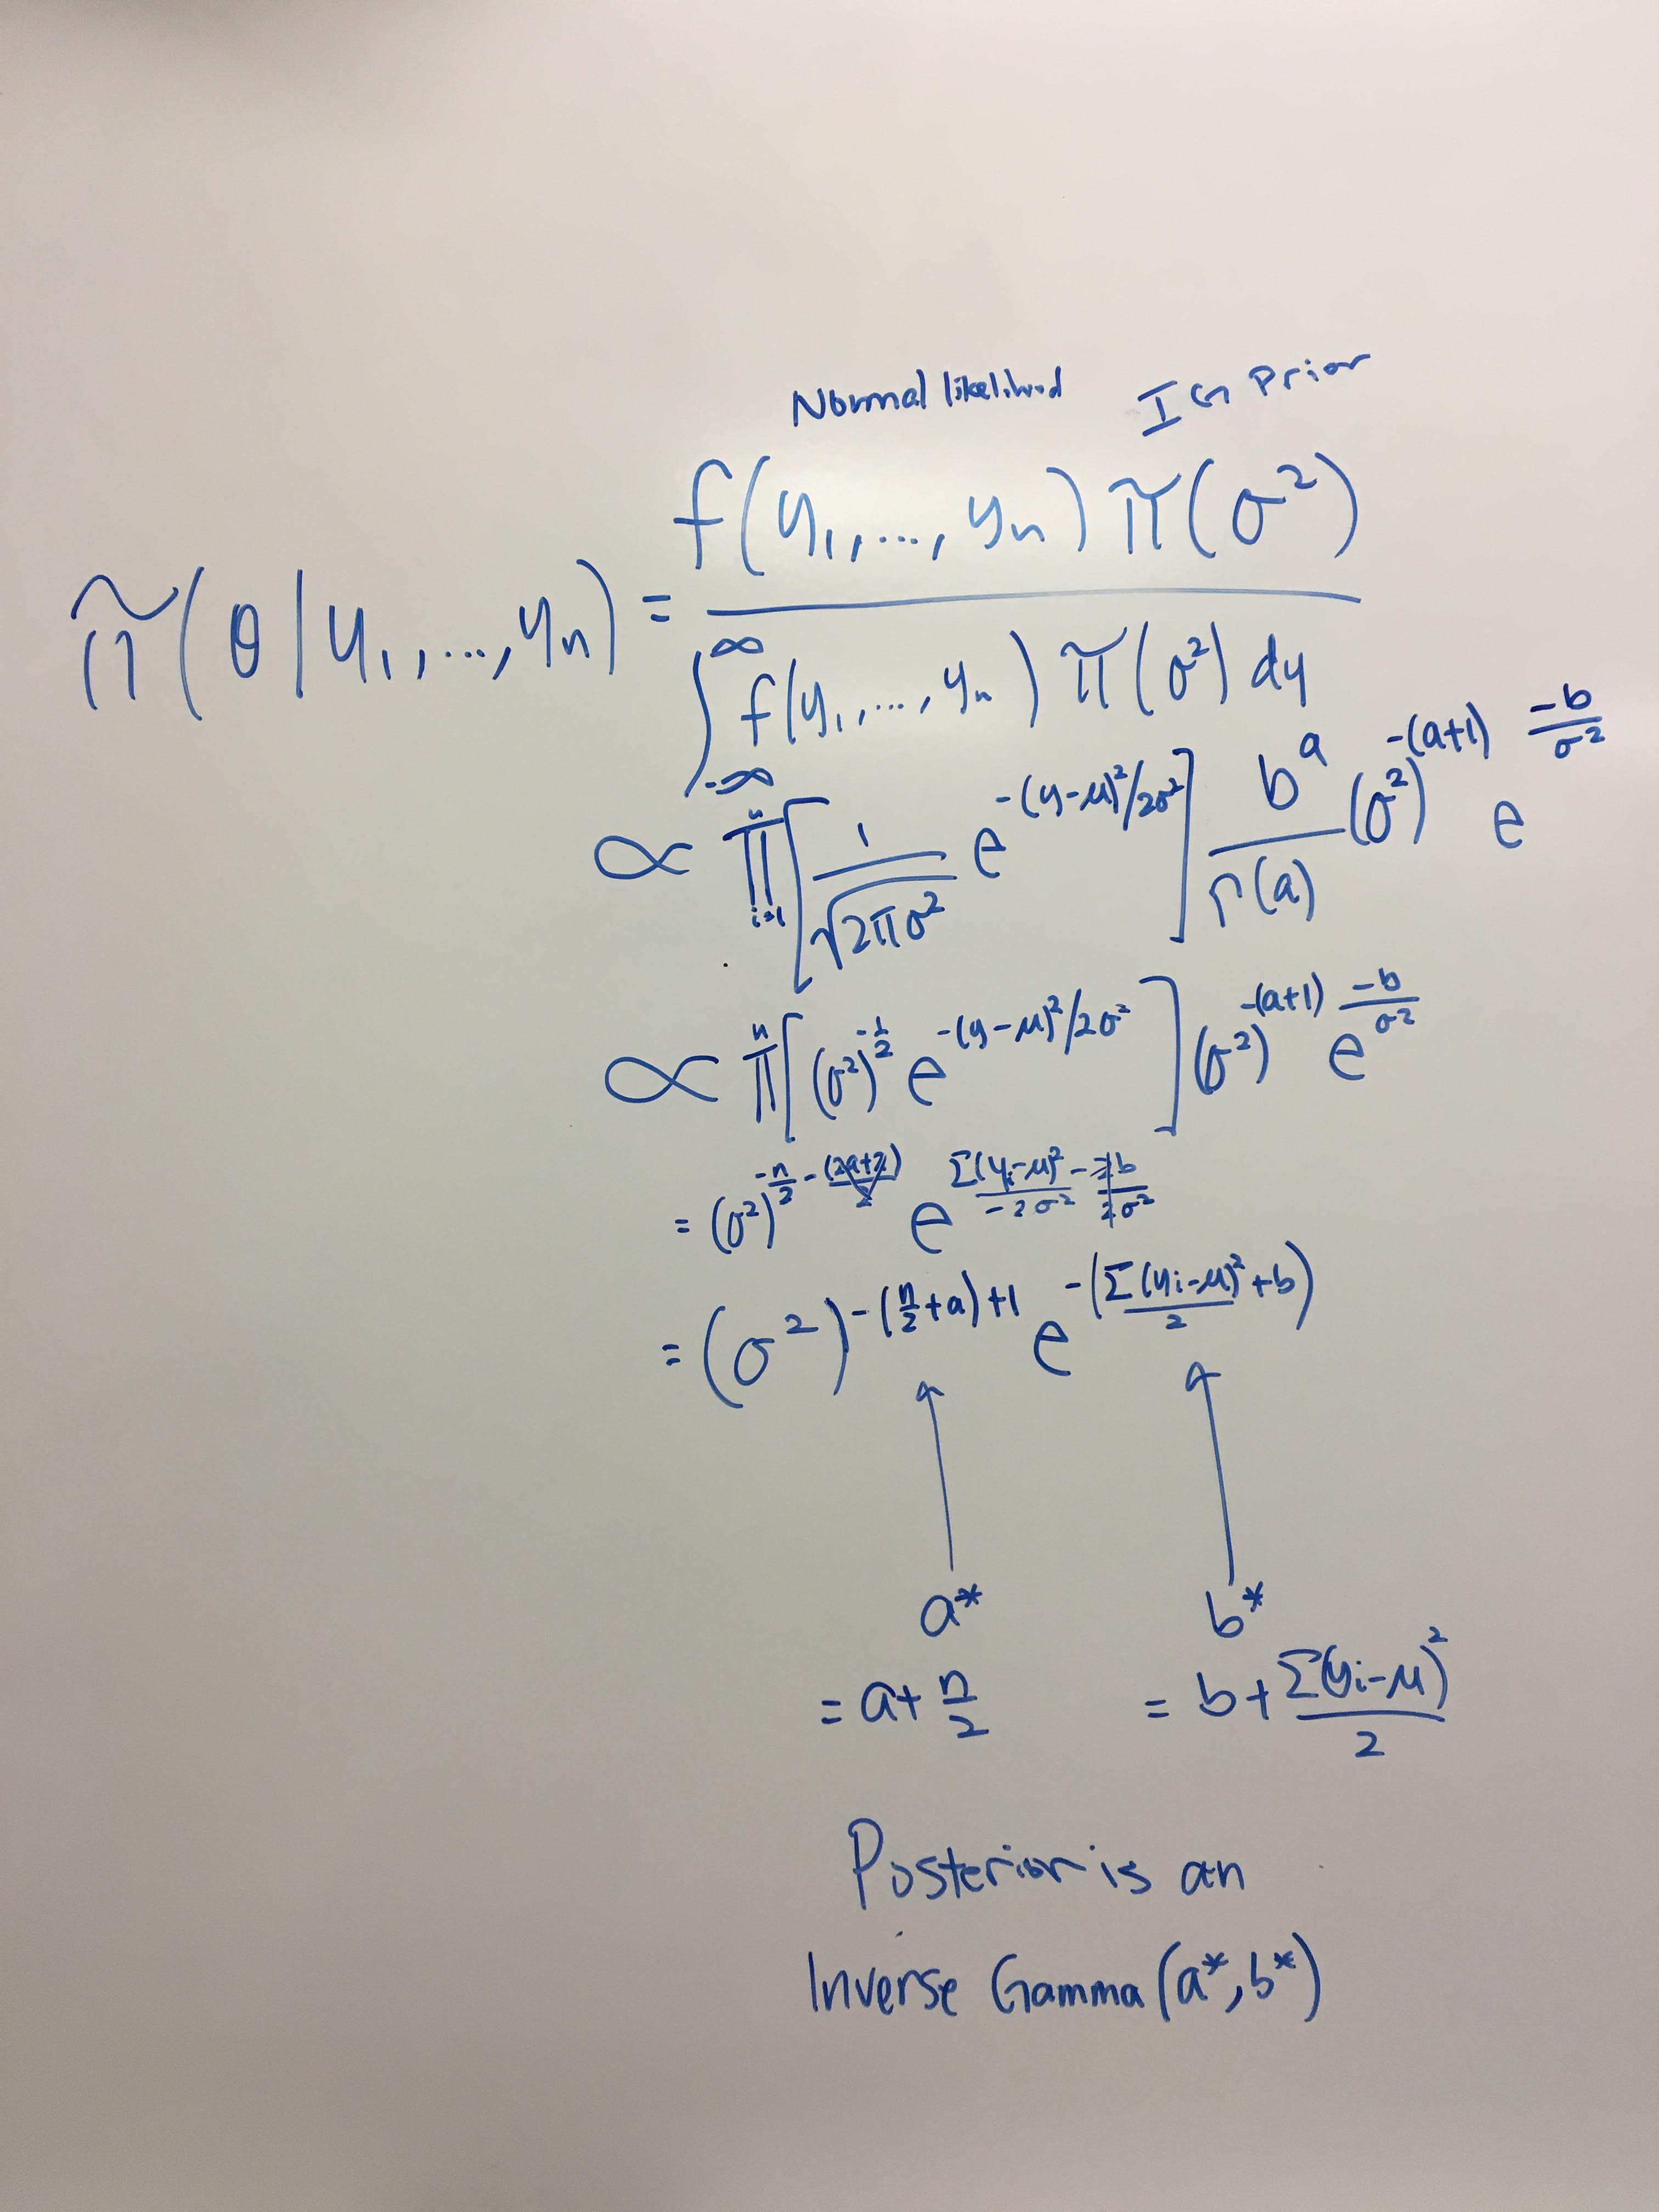 Normal likelihood IG Prior
π̃(θ|y₁,...,yₙ) = f(y₁,...,yₙ) π(σ²) / ∫_{-∞}^{∞} f(y₁,...,yₙ) π(σ²) dy
∝ ∏_{i=1}^{n} [ 1/√(2πσ²) e^{-(y-μ)²/2σ²} ] b^a/Γ(a) (σ²)^{-(a+1)} e^{-b/σ²}
∝ ∏^{n} [ (σ²)^{-1/2} e^{-(y-μ)²/2σ²} ] (σ²)^{-(a+1)} e^{-b/σ²}
= (σ²)^{-n/2 - (2a+2)/2} e^{Σ(yᵢ-μ)²/-2σ² - 2b/2σ²}
= (σ²)^{-(n/2+a)+1} e^{-(Σ(yᵢ-μ)²/2 + b)}
a* b*
= a + n/2 = b + Σ(yᵢ-μ)²/2
Posterior is an
Inverse Gamma (a*, b*)